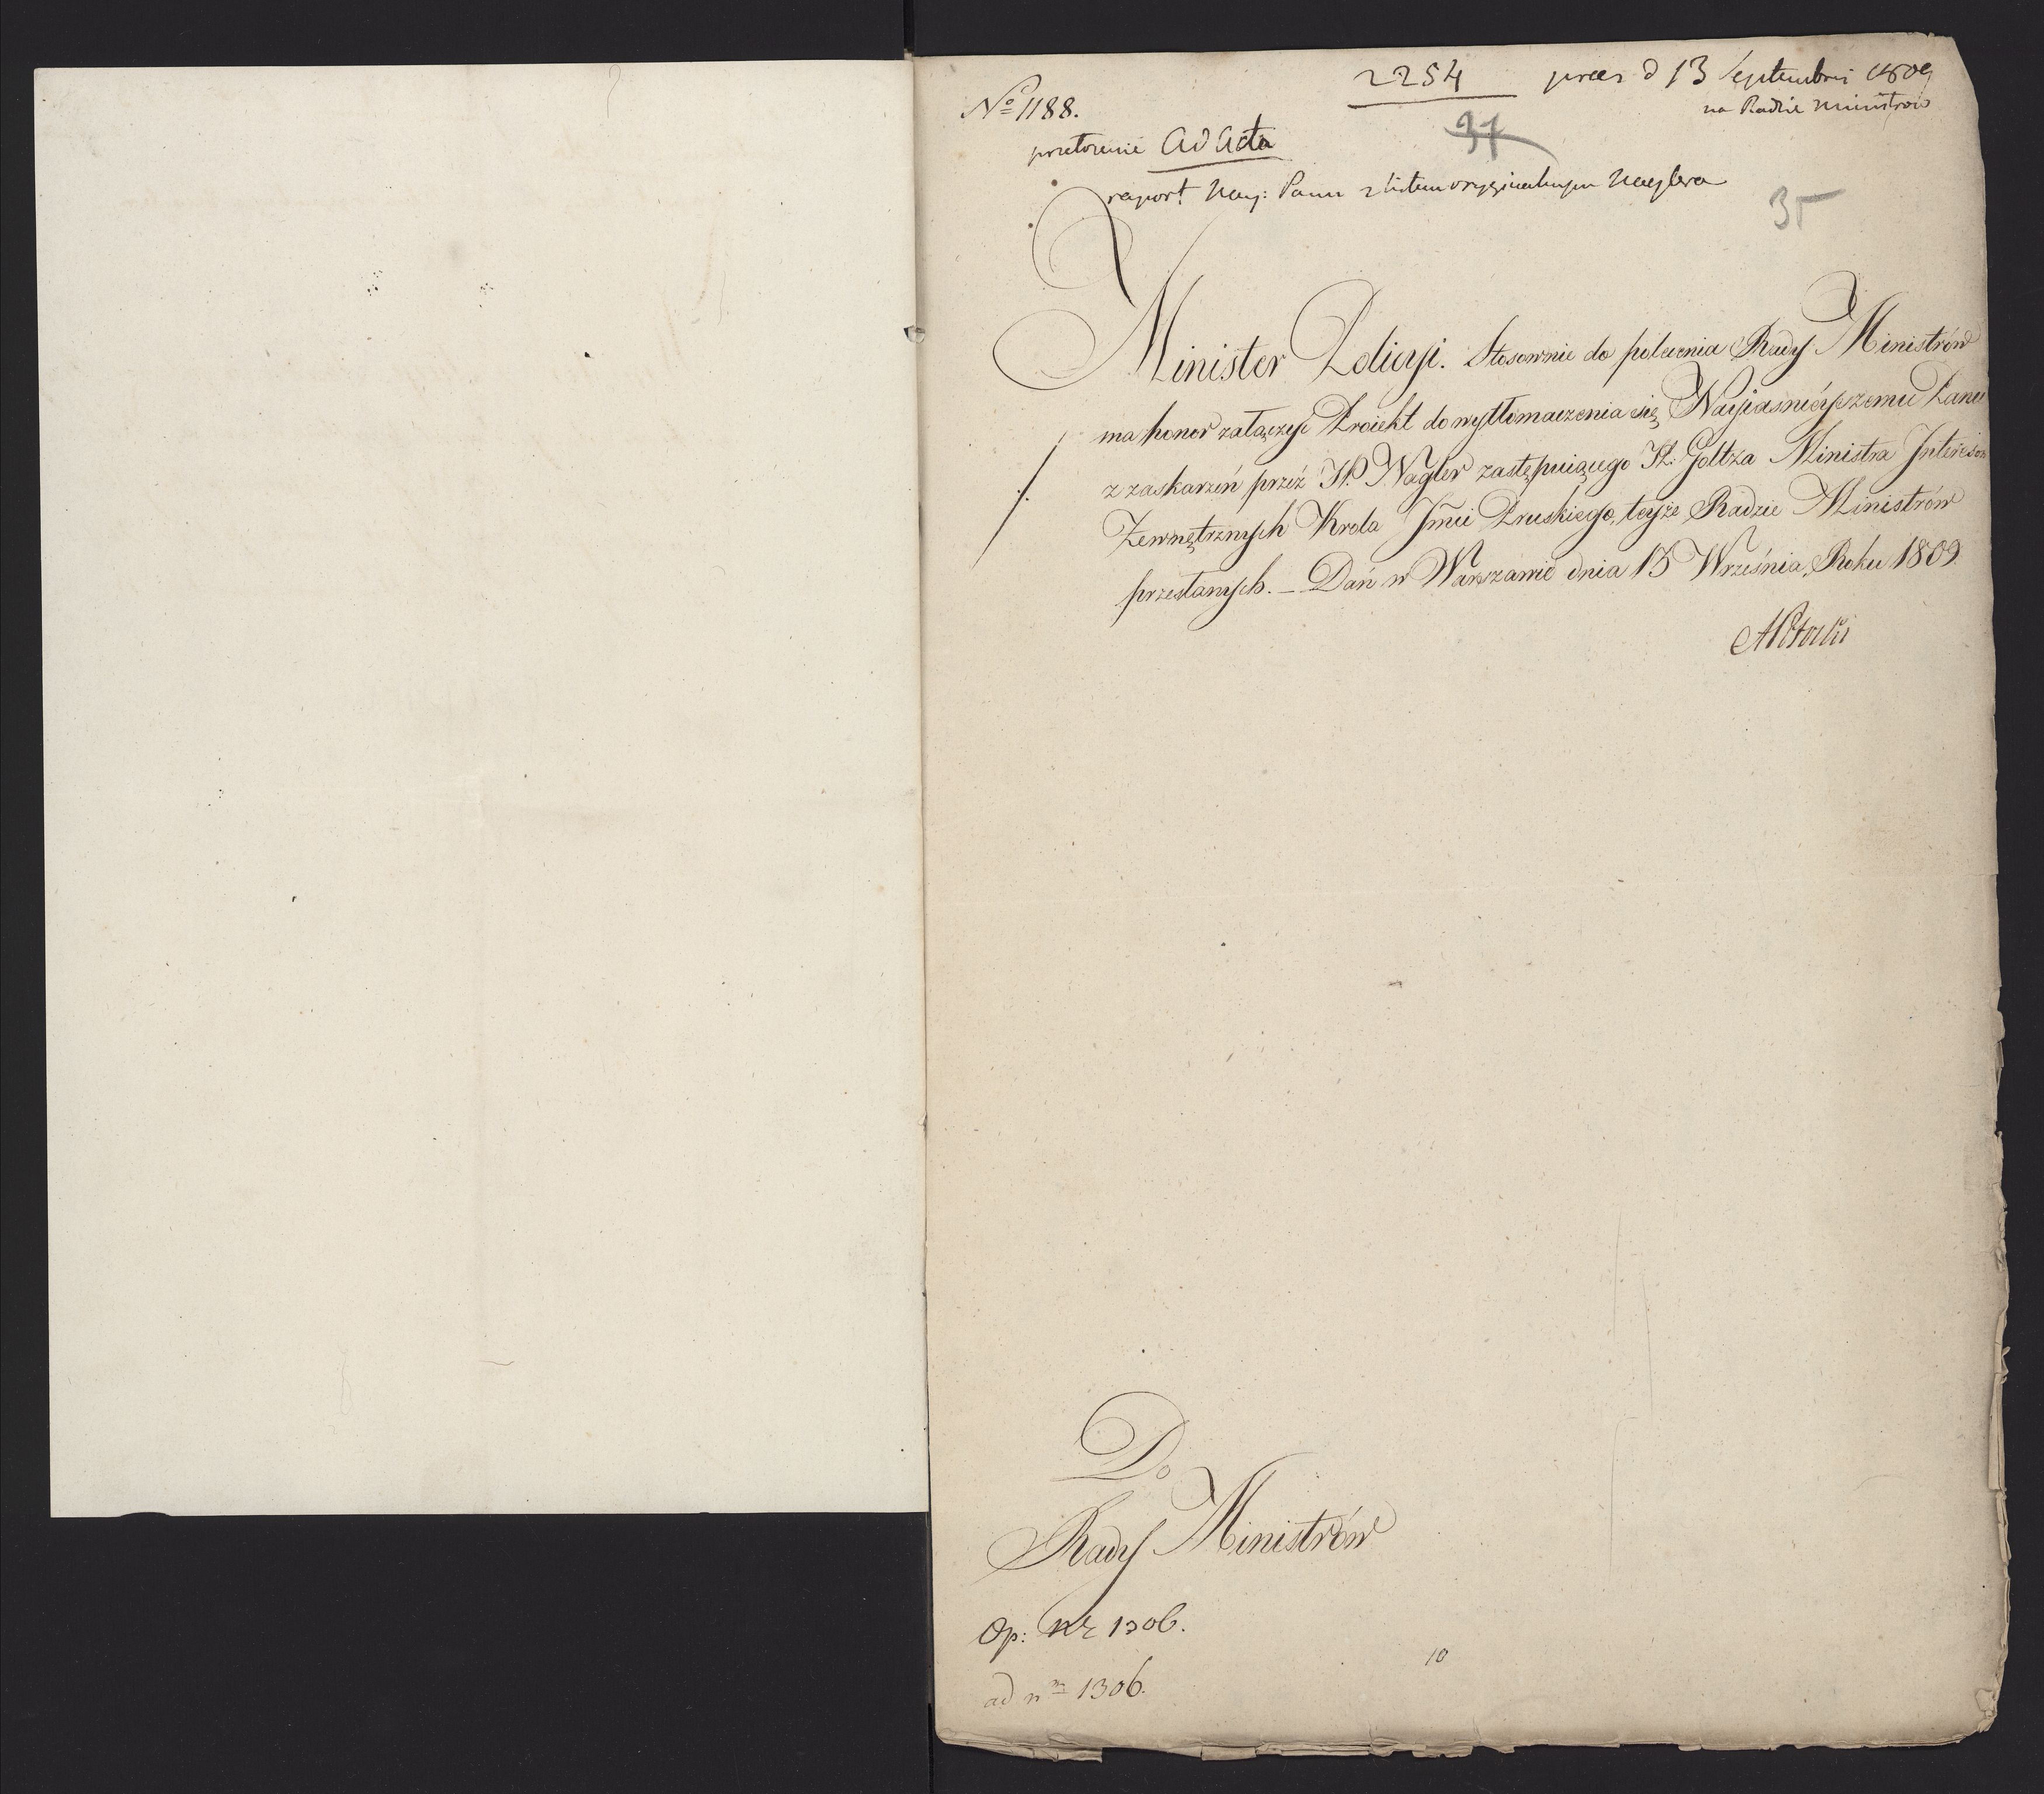 2254 præs d 13 Septembris 1809
No 1188. na Radzie Ministrow
37
przełożenie ad acta
raport Nay: Panu z listem oryginalnym Naglera
35
Minister Policyi. Stosownie do polecenia Rady Ministrów
ma honor załączyć Proiekt do wytłomaczenia się Nayiaśnieyszemu Panu
z zaskarzeń przéz JP. Nagler zastępuiącego H. Goltza Ministra Interesów
Zewnętrznych Krola Jmci Pruskiego, teyże Radzie Ministrów
przesłanych. – Dań w Warszawie dnia 13 Września Roku 1809
APotocki
Do
Rady Ministrów
Op: nr 1306.
10
ad nm 1306.